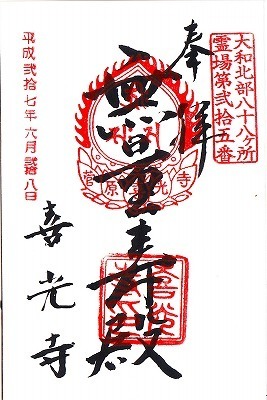 大和北部八十八ヶ所
霊場第弐拾五番
奉拝
無量壽殿
菅原喜光寺
喜光寺
平成弐拾七年六月弐拾八日